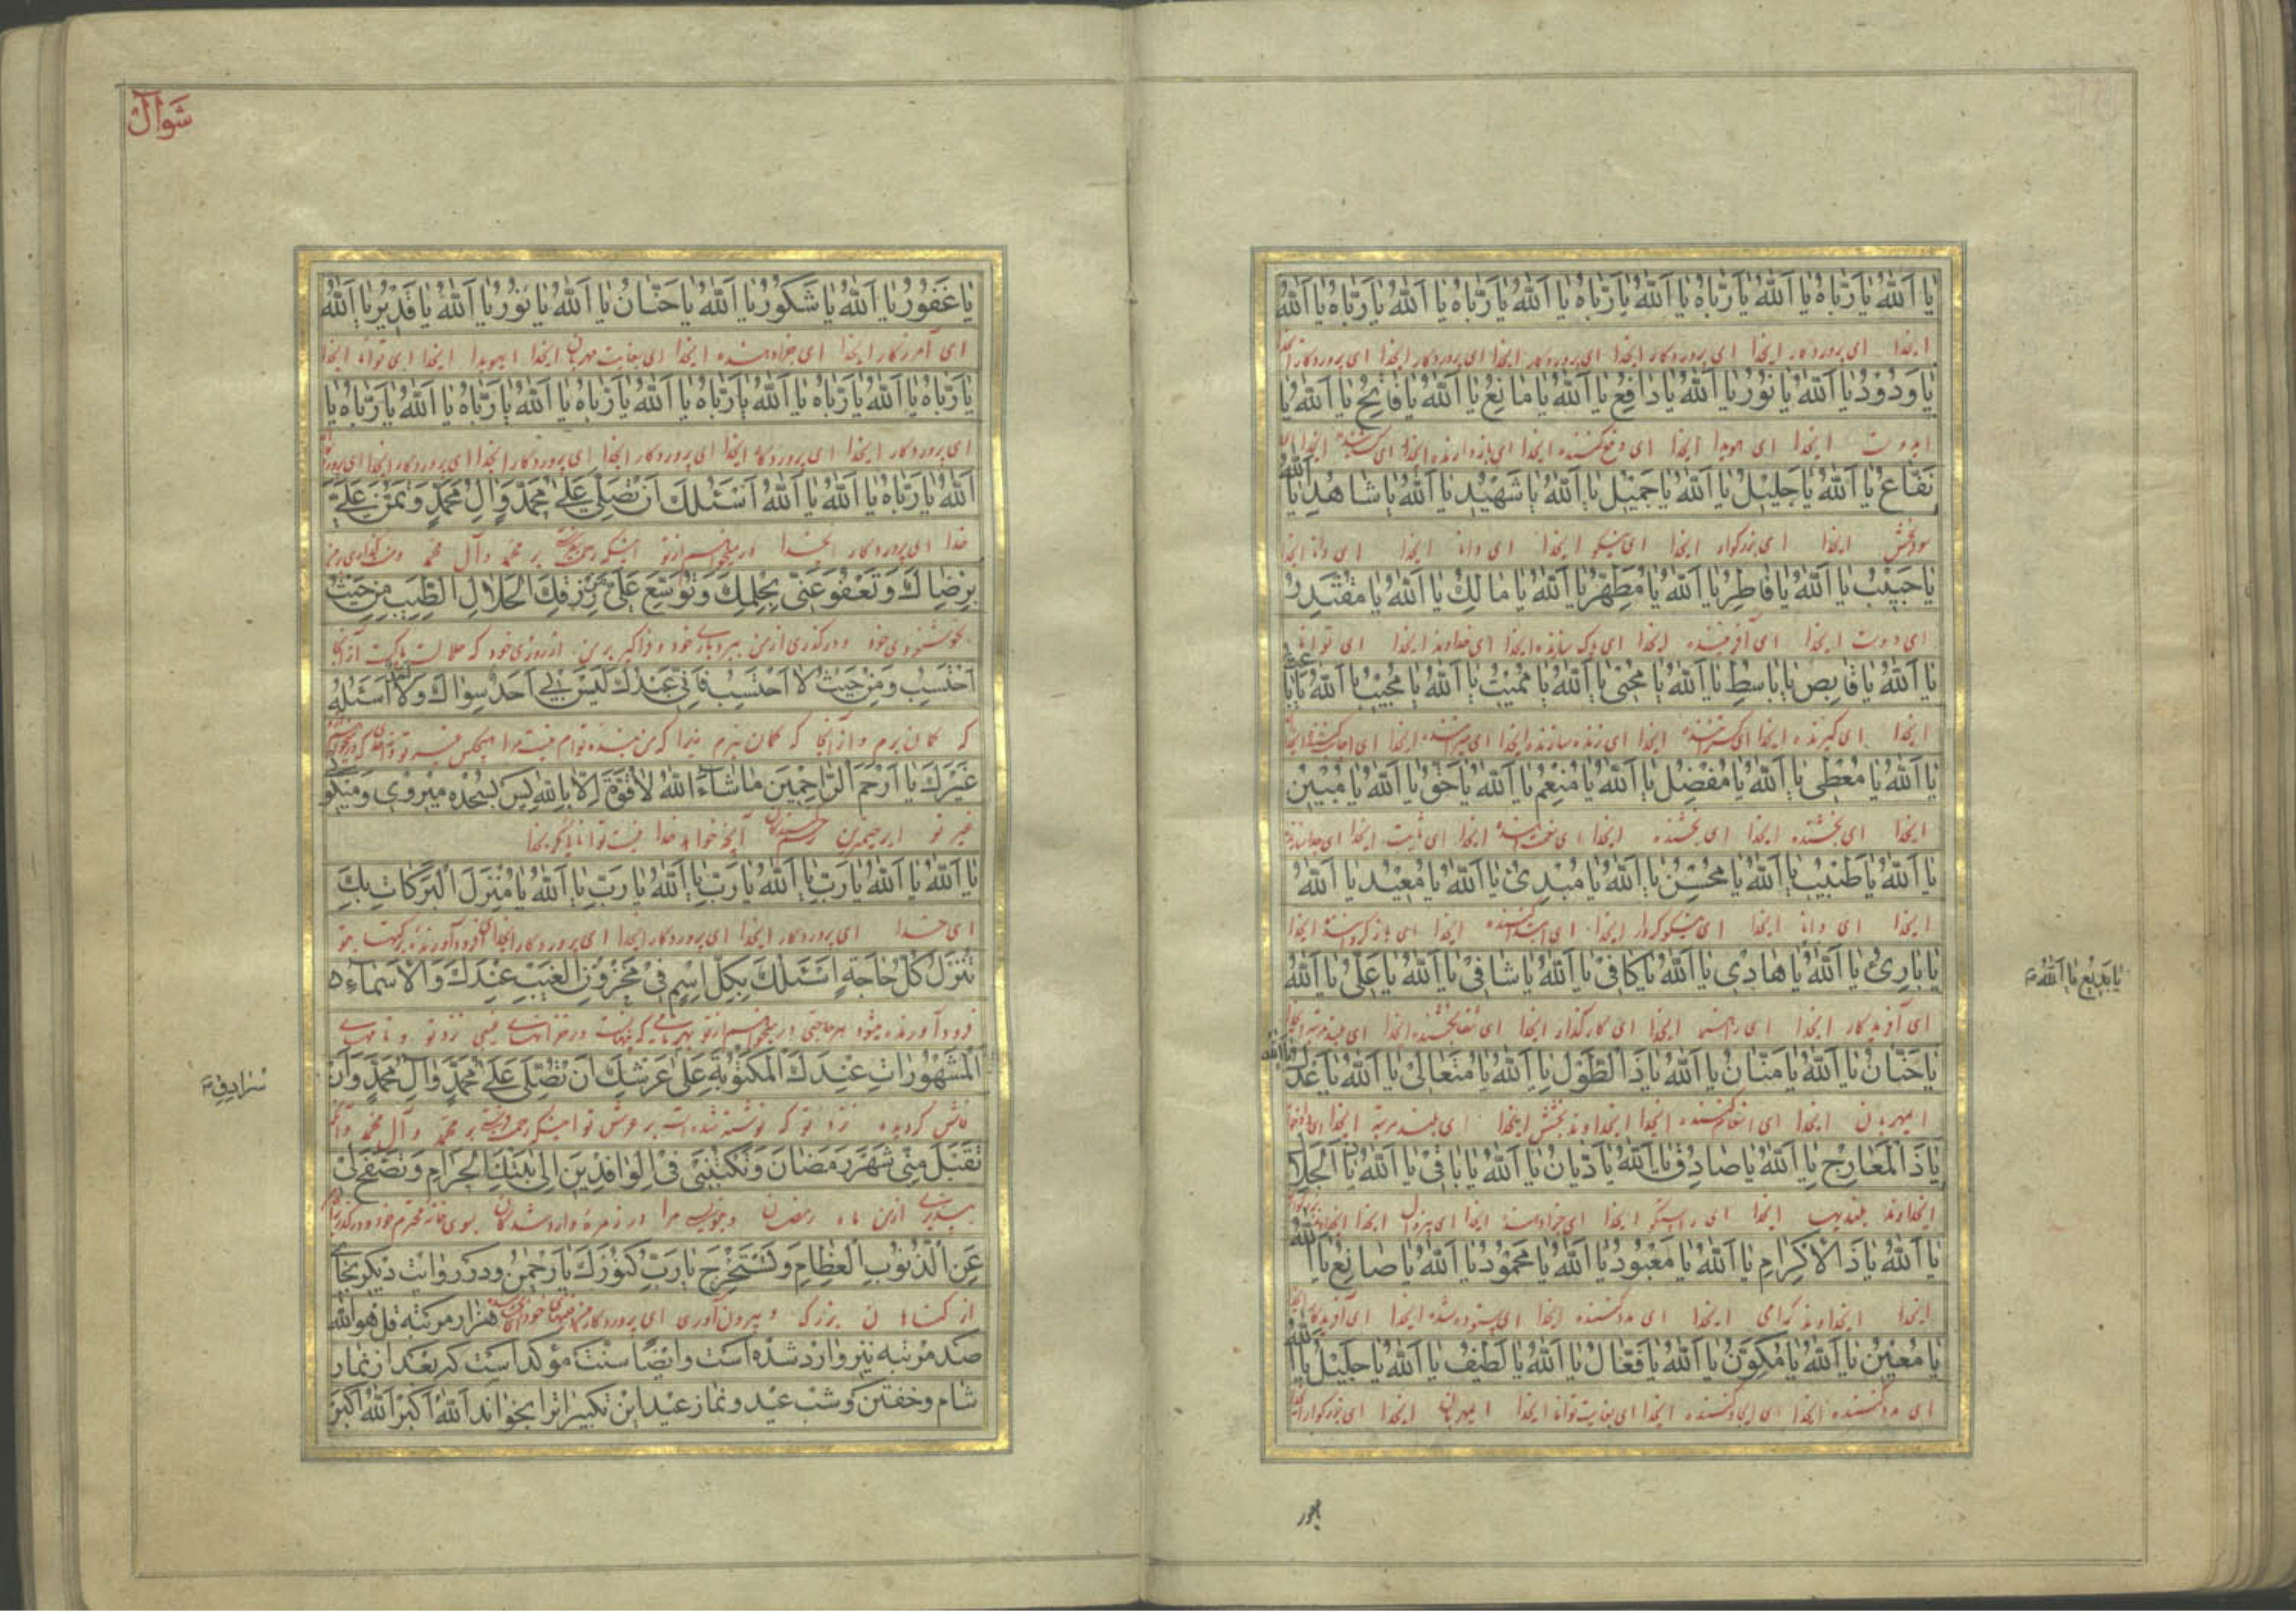 یا اَللّٰهُ یا رَبّاهُ یا اَللّٰهُ یا رَبّاهُ یا اَللّٰهُ یا رَبّاهُ یا اَللّٰهُ یا رَبّاهُ یا اَللّٰهُ یا رَبّاهُ یا اَللّٰهُ
ایخدا ای پروردکار ایخدا ای پروردکار ایخدا ای پروردکار ایخدا ای پروردکار ایخدا ای پروردکار
یا وَدُودُ یا اَللّٰهُ یا نُورُ یا اَللّٰهُ یا دافِعُ یا اَللّٰهُ یا مانِعُ یا اَللّٰهُ یا فاتِحُ یا اَللّٰهُ یا
ایدوست ایخدا ای هویدا ایخدا ای دفع کننده ایخدا ای بازدارنده ایخدا ای ایخدا
نَفّاعُ یا اَللّٰهُ یا جَلِیلُ یا اَللّٰهُ یا جَمِیلُ یا اَللّٰهُ یا شَهِیدُ یا اَللّٰهُ یا شاهِدُ یا اَللّٰهُ
سودبخش ایخدا ای بزرکوار ایخدا ای نیکو ایخدا ای دانا ایخدا ای دانا ایخدا
یا حَبِیبُ یا اَللّٰهُ یا فاطِرُ یا اَللّٰهُ یا مُطَهِّرُ یا اَللّٰهُ یا مالِكُ یا اَللّٰهُ یا مُقْتَدِرُ
ای دوست ایخدا ای آفریننده ایخدا ای پاک سازنده ایخدا ای خداوند ایخدا ای توانا
یا اَللّٰهُ یا قابِضُ یا باسِطُ یا اَللّٰهُ یا مُحْیِی یا اَللّٰهُ یا مُمِیتُ یا اَللّٰهُ یا مُجِیبُ یا اَللّٰهُ یا باعِثُ
ایخدا ای کیرنده ایخدا ای ایخدا ای زنده سازنده ایخدا ای میراننده ایخدا ای
یا اَللّٰهُ یا مُعْطِی یا اَللّٰهُ یا مُفْضِلُ یا اَللّٰهُ یا مُنْعِمُ یا اَللّٰهُ یا حَقُّ یا اَللّٰهُ یا مُبِینُ
ایخدا ای بخشنده ایخدا ای بخشنده ایخدا ای نعمت دهنده ایخدا ای ثابت ایخدا ای
یا اَللّٰهُ یا طَبِیبُ یا اَللّٰهُ یا مُحْسِنُ یا اَللّٰهُ یا مُبْدِئُ یا اَللّٰهُ یا مُعِیدُ یا اَللّٰهُ
ایخدا ای دانا ایخدا ای نیکوکردار ایخدا ای ابتداکننده ایخدا ای ایخدا
یا بارِئُ یا اَللّٰهُ یا هادِی یا اَللّٰهُ یا کافِی یا اَللّٰهُ یا شافِی یا اَللّٰهُ یا عَلِیُّ یا اَللّٰهُ
یا بَدِیعُ یا اَللّٰهُ
ای آفریدکار ایخدا ای رهنما ایخدا ای کارگذار ایخدا ای شفابخشنده ایخدا ای بلند مرتبه ایخدا
یا حَنّانُ یا اَللّٰهُ یا مَنّانُ یا اَللّٰهُ یا ذَا الطَّوْلِ یا اَللّٰهُ یا مُتَعالِی یا اَللّٰهُ یا عَدْلُ یا اَللّٰهُ
ایمهربان ایخدا ای انعام کننده ایخدا ایخداوند بخشش ایخدا ای بلند مرتبه ایخدا
یا ذَا الْمَعارِجِ یا اَللّٰهُ یا صادِقُ یا اَللّٰهُ یا دَیّانُ یا اَللّٰهُ یا باقِی یا اَللّٰهُ یا ذَا الْجَلالِ
ایخداوند بلندیها ایخدا ای راستکو ایخدا ای جزادهنده ایخدا ای ایخدا
یا اَللّٰهُ یا ذَا الْاِکْرامِ یا اَللّٰهُ یا مَعْبُودُ یا اَللّٰهُ یا مَحْمُودُ یا اَللّٰهُ یا صانِعُ یا اَللّٰهُ
ایخدا ایخداوند کرامی ایخدا ای ایخدا ای ستوده شده ایخدا ای آفریدکار
یا مُعِینُ یا اَللّٰهُ یا مُکَوِّنُ یا اَللّٰهُ یا فَعّالُ یا اَللّٰهُ یا لَطِیفُ یا اَللّٰهُ یا جَلِیلُ یا اَللّٰهُ
ای مددکننده ایخدا ای ایجادکننده ایخدا ای بغایت توانا ایخدا ایمهربان ایخدا ای بزرکوار
شَوّال
یا غَفُورُ یا اَللّٰهُ یا شَکُورُ یا اَللّٰهُ یا حَنّانُ یا اَللّٰهُ یا نُورُ یا اَللّٰهُ یا قَدِیرُ یا اَللّٰهُ
ای آمرزکار ایخدا ای جزادهنده ایخدا ای بغایت مهربان ایخدا ایهویدا ایخدا ای توانا ایخدا
یا رَبّاهُ یا اَللّٰهُ یا رَبّاهُ یا اَللّٰهُ یا رَبّاهُ یا اَللّٰهُ یا رَبّاهُ یا اَللّٰهُ یا رَبّاهُ یا اَللّٰهُ یا رَبّاهُ یا
ای پروردکار ایخدا ای پروردکار ایخدا ای پروردکار ایخدا ای پروردکار ایخدا ای پروردکار ایخدا
اَللّٰهُ یا رَبّاهُ یا اَللّٰهُ یا اَللّٰهُ اَسْئَلُكَ اَنْ تُصَلِّیَ عَلیٰ مُحَمَّدٍ وَ آلِ مُحَمَّدٍ وَتَمُنَّ عَلَیَّ
خدا ای پروردکار ایخدا درمیخواهم ازتو اینکه رحمت بر محمد و آل محمد
بِرِضاكَ وَ تَعْفُوَ عَنّی بِحِلْمِكَ وَ تُوَسِّعَ عَلَیَّ مِنْ رِزْقِكَ الْحَلالِ الطَّیِّبِ مِنْ حَیْثُ
بخوشنودی خود و درگذری از من ببردباری خود بر من از روزی خود که حلال است پاکست از آنجا
اَحْتَسِبُ وَ مِنْ حَیْثُ لا اَحْتَسِبُ فَاِنّی عَبْدُكَ لَیْسَ لی اَحَدٌ سِواكَ وَ لا اَسْئَلُهُ
که کمان برم و از آنجا که کمان نبرم زیرا که من بنده توام نیست مرا هیچکس غیر تو
غَیْرَكَ یا اَرْحَمَ الرّاحِمِینَ ما شاءَ اللّٰهُ لا قُوَّةَ اِلّا بِاللّٰهِ پس بسجده میروی و میکوئی
غیر تو ایرحیمترین آنچه خواهد خدا نیست توانائی مکر بخدا
یا اَللّٰهُ یا اَللّٰهُ یا رَبِّ یا اَللّٰهُ یا رَبِّ یا اَللّٰهُ یا رَبِّ یا اَللّٰهُ یا مُنْزِلَ الْبَرَکاتِ بِكَ
ای خدا ای پروردکار ایخدا ای پروردکار ایخدا ای پروردکار ایخدا فرودآورنده برکتها بتو
تُنْزَلُ کُلُّ حاجَةٍ اَسْئَلُكَ بِکُلِّ اسْمٍ فی مَخْزُونِ الْغَیْبِ عِنْدَكَ وَ الْاَسْماءِ
فرودآورده میشود هر حاجتی درمیخواهم ازتو بهر نامی که در غیبی نزد تو و نامهای
الْمَشْهُوراتِ عِنْدَكَ الْمَکْتُوبَةِ عَلیٰ عَرْشِكَ اَنْ تُصَلِّیَ عَلیٰ مُحَمَّدٍ وَ آلِ مُحَمَّدٍ وَ اَنْ
فاش کردیده نزد تو که نوشته شده است بر عرش تو اینکه رحمت بر محمد و آل محمد
تَقْبَلَ مِنّی شَهْرَ رَمَضانَ وَ تَکْتُبَنی فِی الْوافِدِینَ اِلیٰ بَیْتِكَ الْحَرامِ وَ تَصْفَحَ لی
بپذیری از من ماه رمضان و بنویسی مرا در زمره واردشدکان بسوی خانه محترم خود و درکذری
عَنِ الذُّنُوبِ الْعِظامِ وَ تَسْتَخْرِجَ یا رَبِّ کُنُوزَكَ یا رَحْمٰنُ و در روایت دیکر بجای
از کناهان بزرک و بیرون آوری ای پروردکار خود هزار مرتبه قل هو اللّٰه
صد مرتبه نیز وارد شده است و ایضا سنت مؤکد است که بعد از نماز
شام و خفتن و شب عید و نماز عید این تکبیرات را بخواند اَللّٰهُ اَکْبَرُ اَللّٰهُ اَکْبَرُ